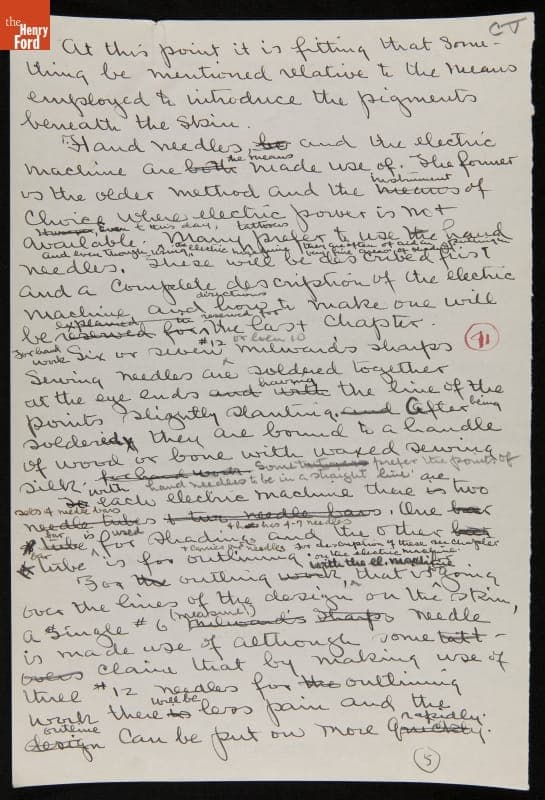 the
Henry
Ford
CT
At this point it is fitting that some-
thing be mentioned relative to the means
employed to introduce the pigments
beneath the skin.
Hand needles, and the electric
machine are both the means made use of. The former
instrument
is the older method and the means of
choice where electric power is not
Even to this day, tattooers
available. Many prefer to use the hand
and even though using electric machines
needles. These will be described first
and a complete description of the electric
directions
machine, and how to make one will
explained reserved for
be reserved for the last chapter.
#12 or even 10
For hand work Six or seven Milward's sharps
11
Sewing needles are soldered together
having
at the eye ends and with the line of the
points slightly slanting. and After being
soldered they are bound to a handle
of wood or bone with waxed sewing
silk. for hand work Some prefer the points of
hand needles to be in a straight line
with each electric machine there is are two
sets of needle bars
needle tubes & two needle bars. One bar
& has 4-7 needles
bar is used
tube for shading and the other bar
bar
tube is for outlining on the electric machine.
with the el. machine
For the outling work, that is going
over the lines of the design on the skin,
(measure!)
a single #6 Milward's sharps needle
is made use of although some tatt-
ooers claim that by making use of
three #12 needles for the outlining
will be
work there is less pain and the
outline rapidly.
design can be put on more quickly.
5